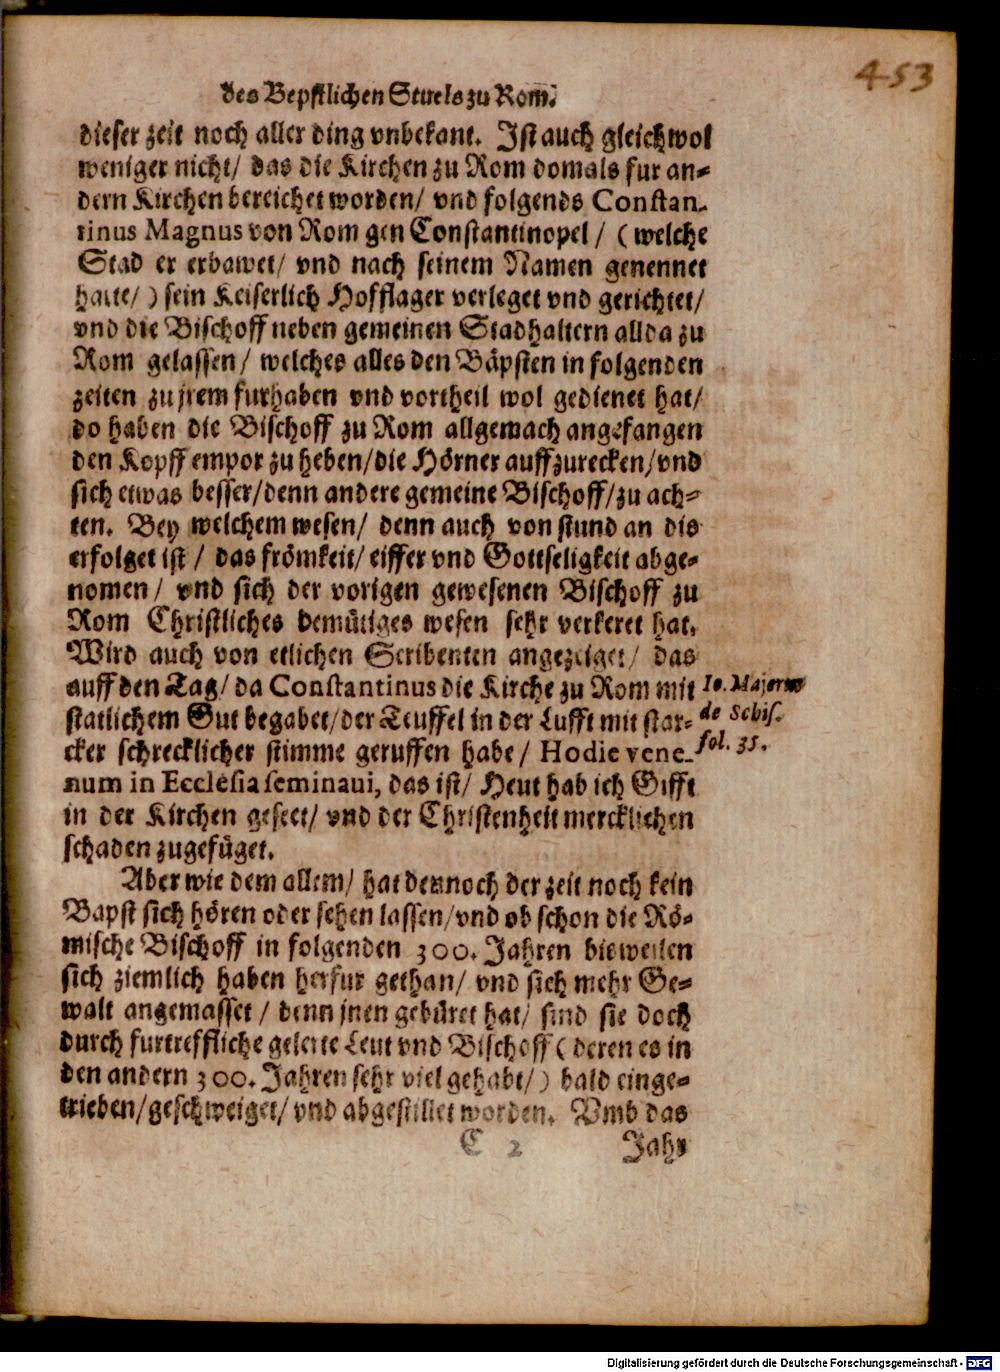 453
des Bepstlichen Stuels zu Rom.
dieser zeit noch aller ding vnbekant. Ist auch gleichwol
weniger nicht/ das die Kirchen zu Rom domals fur an-
dern Kirchen bereichet worden/ vnd folgends Constan-
tinus Magnus von Rom gen Constantinopel / (welche
Stad er erbawet/ vnd nach seinem Namen genennet
hatte/) sein Keiserlich Hofflager verleget vnd gerichtet/
vnd die Bischoff neben gemeinen Stadhaltern allda zu
Rom gelassen/ welches alles den Bäpsten in folgenden
zeiten zu jrem furhaben vnd vortheil wol gedienet hat/
do haben die Bischoff zu Rom allgemach angefangen
den Kopff empor zu heben/die Hörner auffzurecken/vnd
sich etwas besser/denn andere gemeine Bischoff/zu ach-
ten. Bey welchem wesen/ denn auch von stund an dis
erfolget ist / das frömkeit/ eiffer vnd Gottseligkeit abge-
nomen/ vnd sich der vorigen gewesenen Bischoff zu
Rom Christliches demütiges wesen sehr verkeret hat.
Wird auch von etlichen Scribenten angezeiget/ das
auff den Tag/ da Constantinus die Kirche zu Rom mit
statlichem Gut begabet/der Teuffel in der Lufft mit star-
cker schrecklicher stimme geruffen habe/ Hodie vene-
num in Ecclesia seminaui, das ist/ Heut hab ich Gifft
in der Kirchen geseet/ vnd der Christenheit mercklichen
schaden zugefüget.
Io. Majorus
de Schis.
fol. 35.
Aber wie dem allem/ hat dennoch der zeit noch kein
Bapst sich hören oder sehen lassen/vnd ob schon die Rö-
mische Bischoff in folgenden 300. Jahren bieweilen
sich ziemlich haben herfur gethan/ vnd sich mehr Ge-
walt angemasset / denn jnen gebüret hat/ sind sie doch
durch furtreffliche gelerte Leut vnd Bischoff (deren es in
den andern 300. Jahren sehr viel gehabt/) bald einge-
trieben/geschweiget/ vnd abgestillet worden. Vmb das
C 2 Jahr
Digitalisierung gefördert durch die Deutsche Forschungsgemeinschaft - DFG